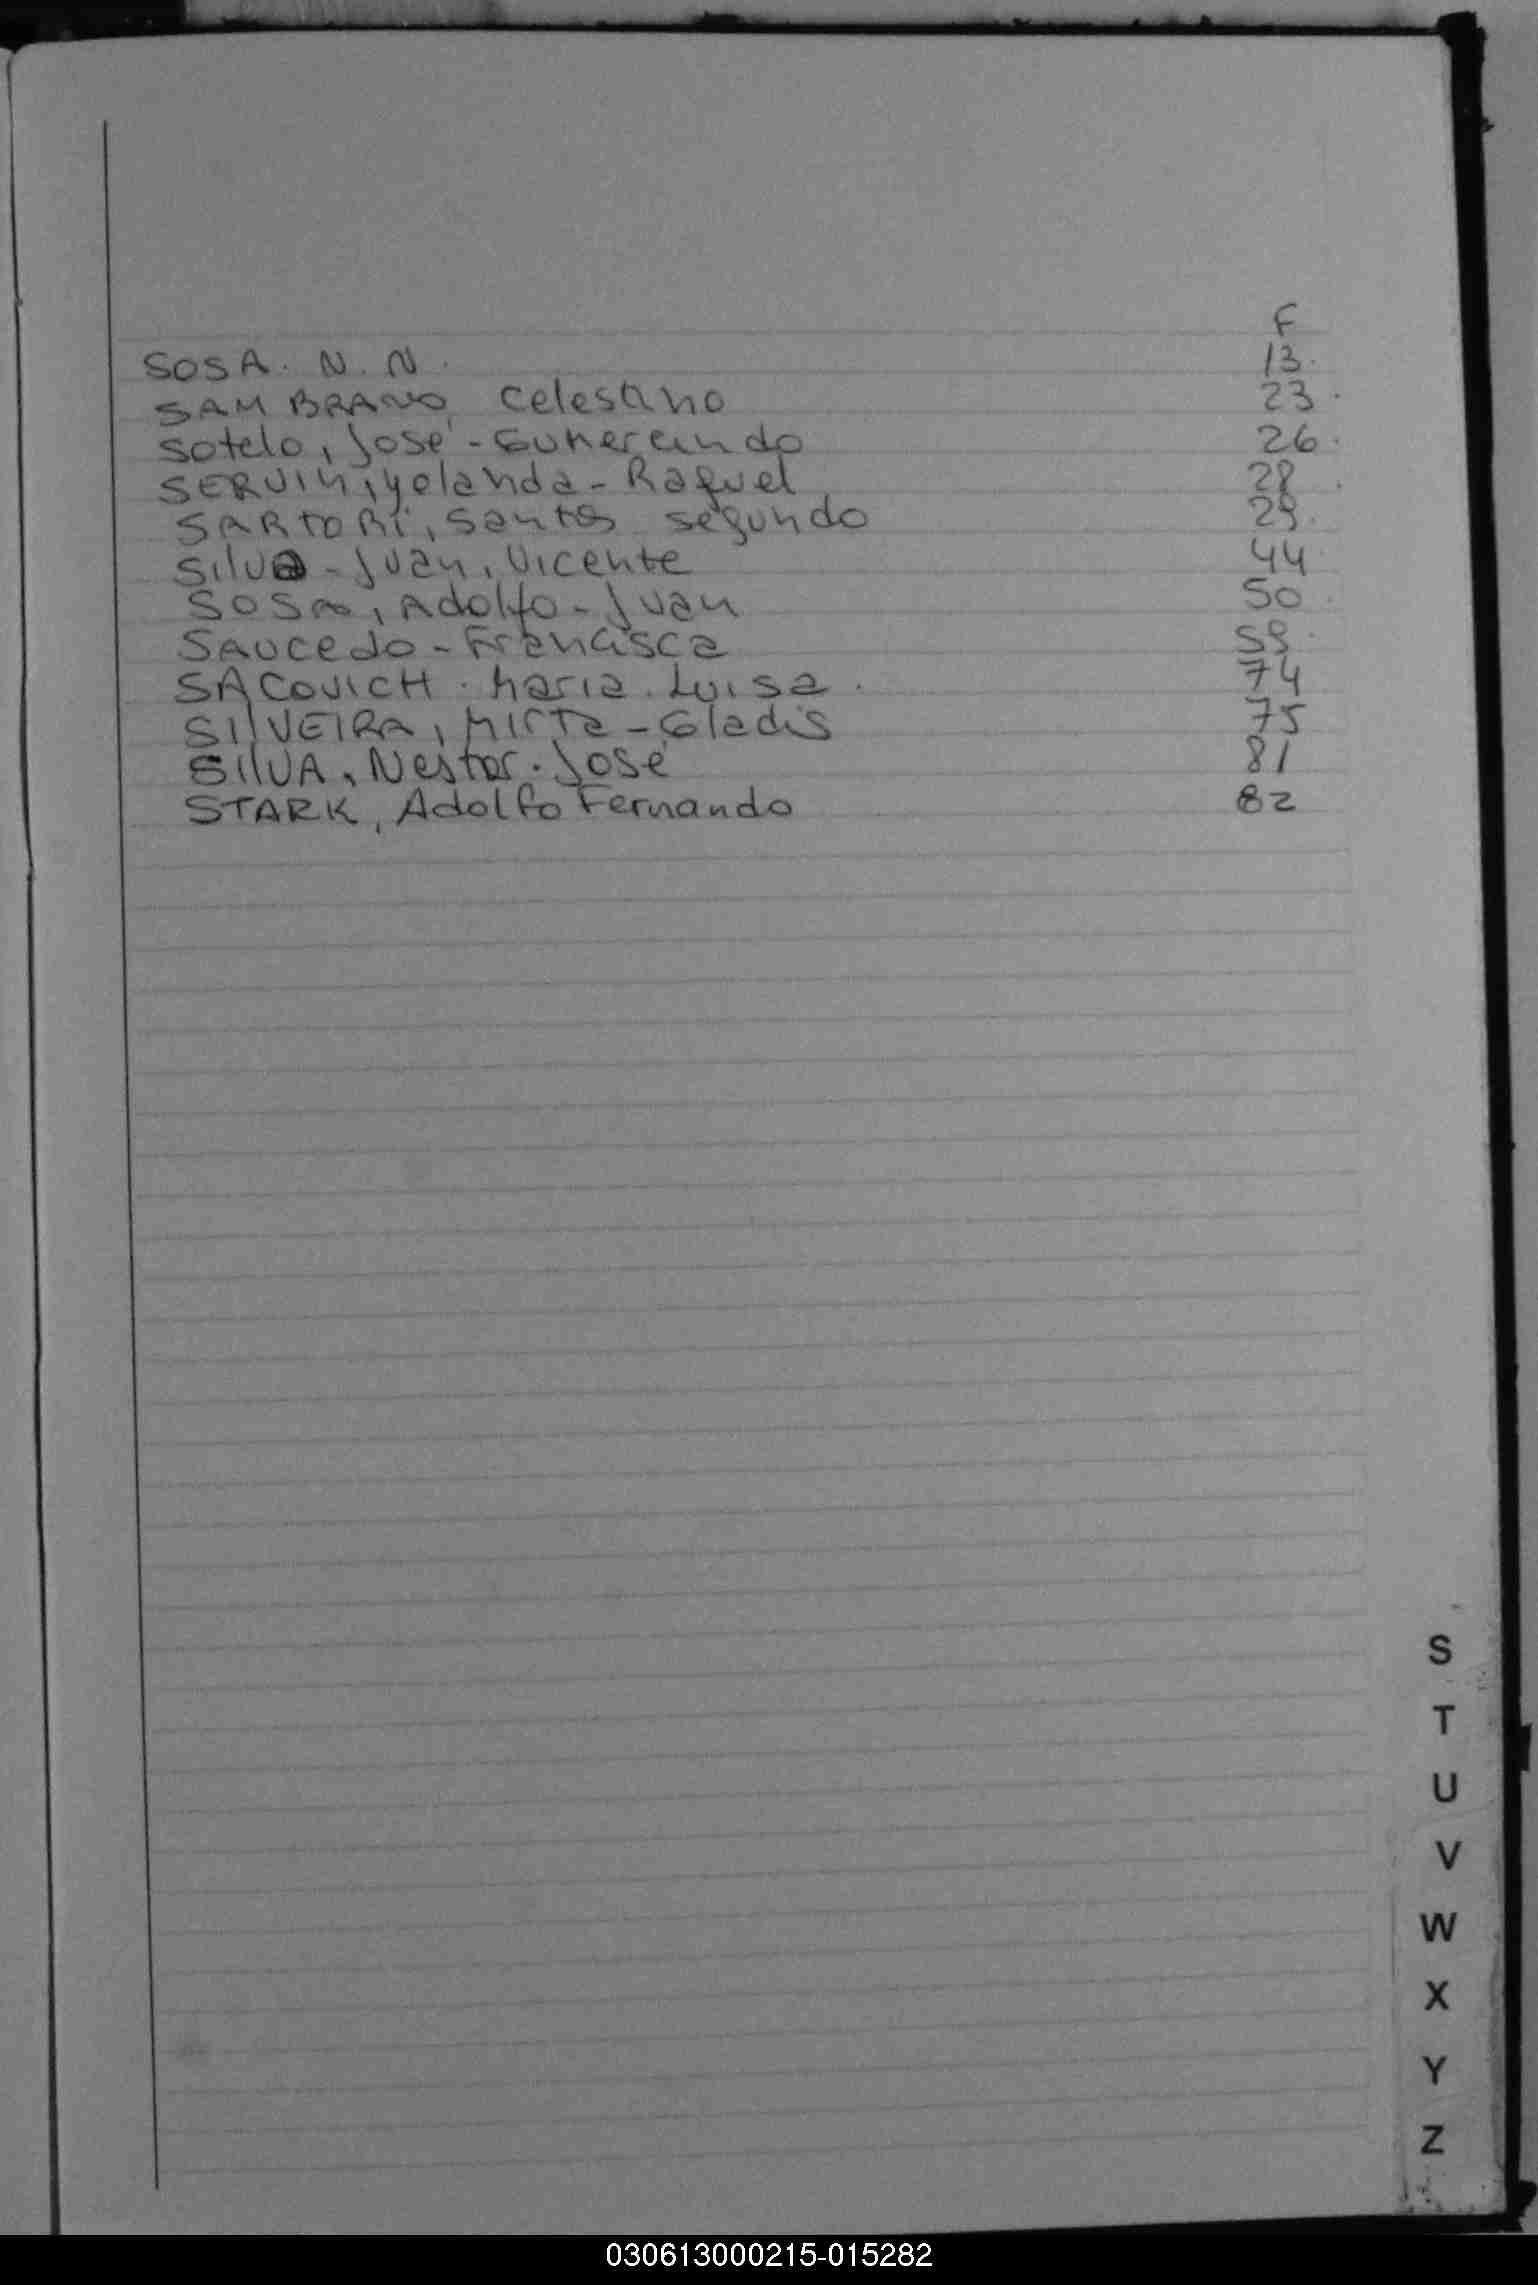 F
SOSA. N. N. 13.
SAMBRANO Celestino 23.
Sotelo, José - Gumercindo 26.
SERVIN, yolanda - Raquel 28.
SARTORI, Santos segundo 29.
Silva - Juan, Vicente 44
SOSA, Adolfo - Juan 50.
SAUCEDO - Francisca 59.
SACOVICH. Maria. Luisa. 74
SILVEIRA, Mirta - Gladis 75
SILVA, Nestor. José 81
STARK, Adolfo Fernando 82
S
T
U
V
W
X
Y
Z
030613000215-015282